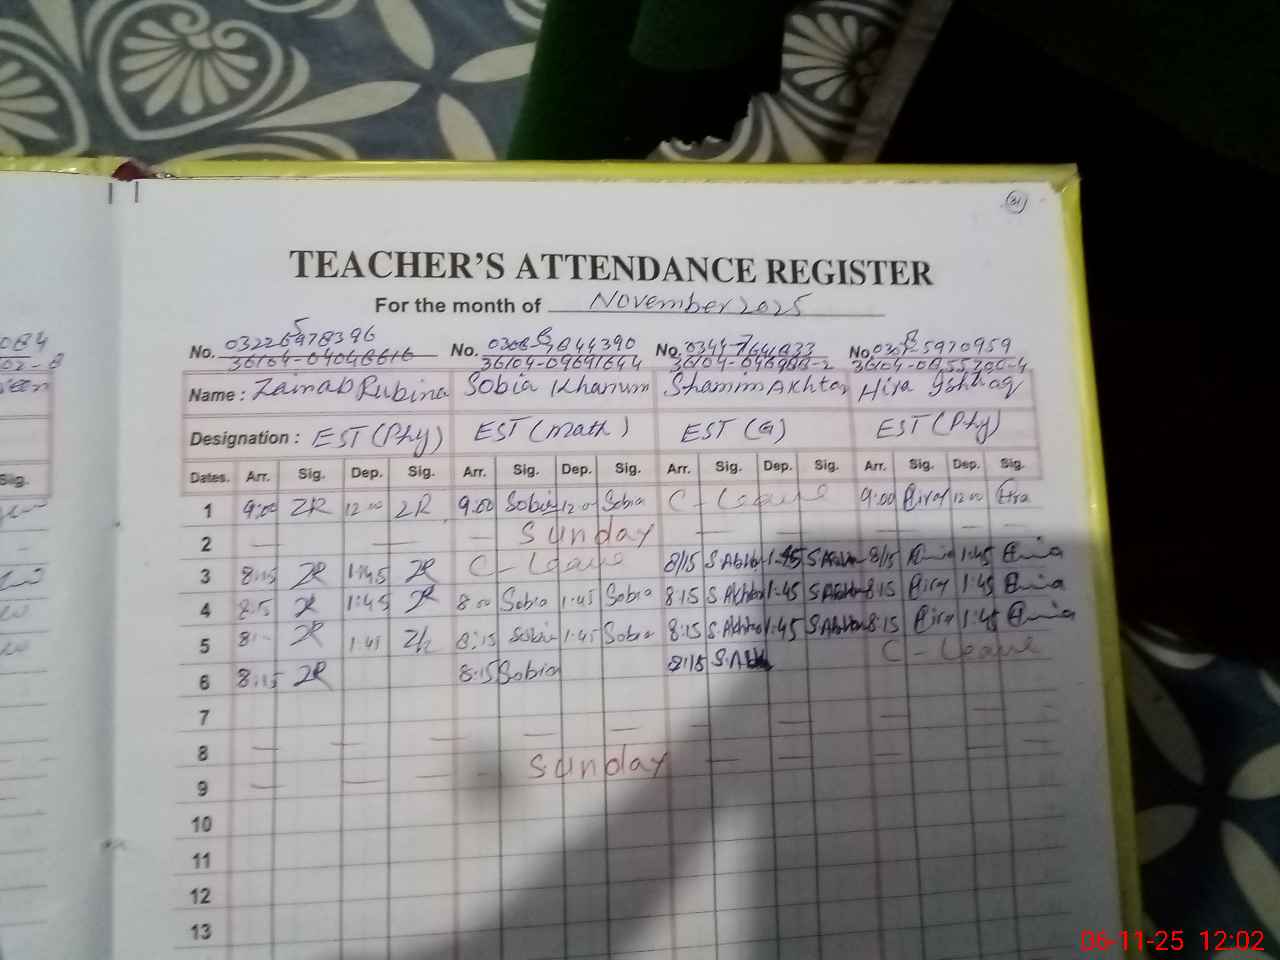 31
TEACHER'S ATTENDANCE REGISTER
For the month of November 2025
No. 03226578396 No. No. No.
36104-09691644
Name : Zainab Rubina Sobia Khanum Shamim Akhtar Hira Ishtiaq
Designation : EST (Phy) EST (math) EST (G) EST (Phy)
Dates. Arr. Sig. Dep. Sig. Arr. Sig. Dep. Sig. Arr. Sig. Dep. Sig. Arr. Sig. Dep. Sig.
1 9:00 ZR 12:00 ZR 9:00 Sobia 12:0 Sobia C - Leave 9:00 12:00
2 — — — Sunday — — — —
3 8:15 ZR 1:45 ZR C - Leave 8:15 S.Akhtar 1:45 S.Akhtar 8:15 1:45
4 ZR 1:45 ZR 8:00 Sobia 1:45 Sobia 8:15 S.Akhtar 1:45 S.Akhtar 8:15 1:45
5 ZR 1:45 ZR 8:15 Sobia 1:45 Sobia 8:15 S.Akhtar 1:45 S.Akhtar 8:15 1:45
6 8:15 ZR 8:15 Sobia 8:15 S.Akh C - Leave
7
8 — — — — — — — — —
9 — — — — Sunday — — —
10
11
12
13
Sig.
06-11-25 12:02